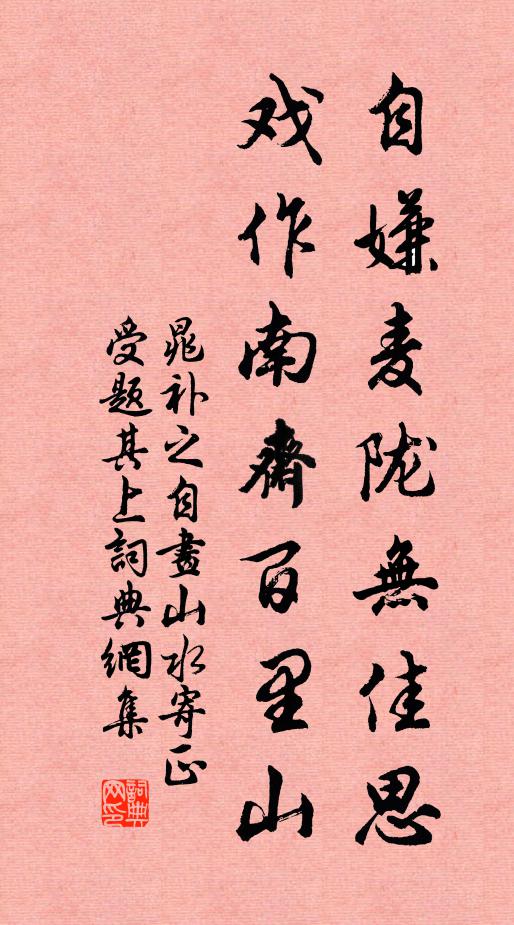 自嫌麦陇無佳思
戏作南齋百里山
晁补之自畫山水寄正
受题其上詞典網集
詞典网印